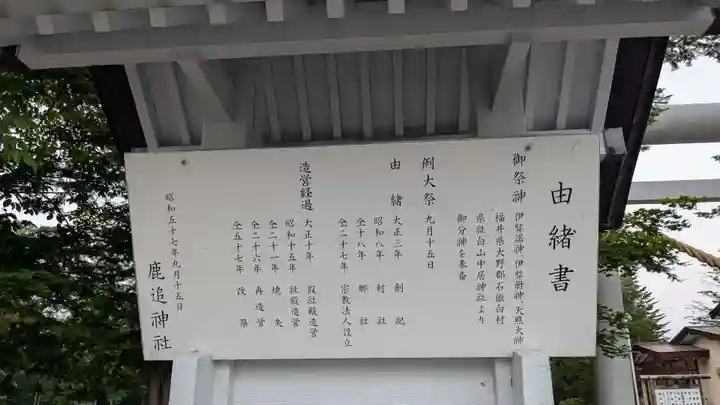 由緒書
御祭神 伊弉諾神 伊弉册神 天照大神
福井県大野郡石徹白村
県社白山中居神社より
御分神を奉斎
例大祭 九月十五日
由緒 大正三年 創祀
昭和八年 村社
仝十八年 郷社
仝二十七年 宗教法人設立
造営経過 大正十年 假社殿造営
昭和十五年 社殿造営
仝二十一年 焼失
仝二十六年 再造営
仝五十七年 改築
昭和五十七年九月十五日
鹿追神社